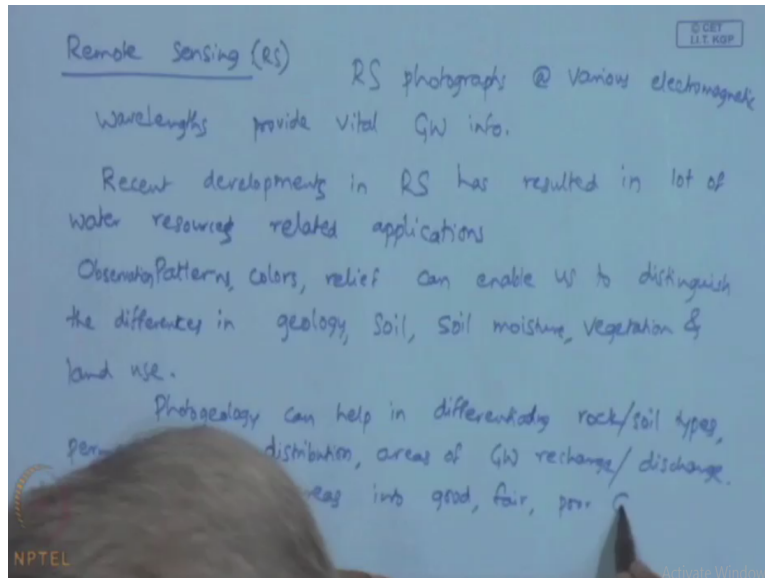 © CET
I.I.T. KGP
Remote Sensing (RS)
RS photographs @ various electromagnetic
wavelengths provide vital GW info.
Recent developments in RS has resulted in lot of
water resources related applications
Observation Patterns, colors, relief can enable us to distinguish
the differences in geology, soil, soil moisture, vegetation &
land use.
Photogeology can help in differentiating rock/soil types,
distribution, areas of GW recharge/discharge.
into good, fair, poor
NPTEL
Activate Window